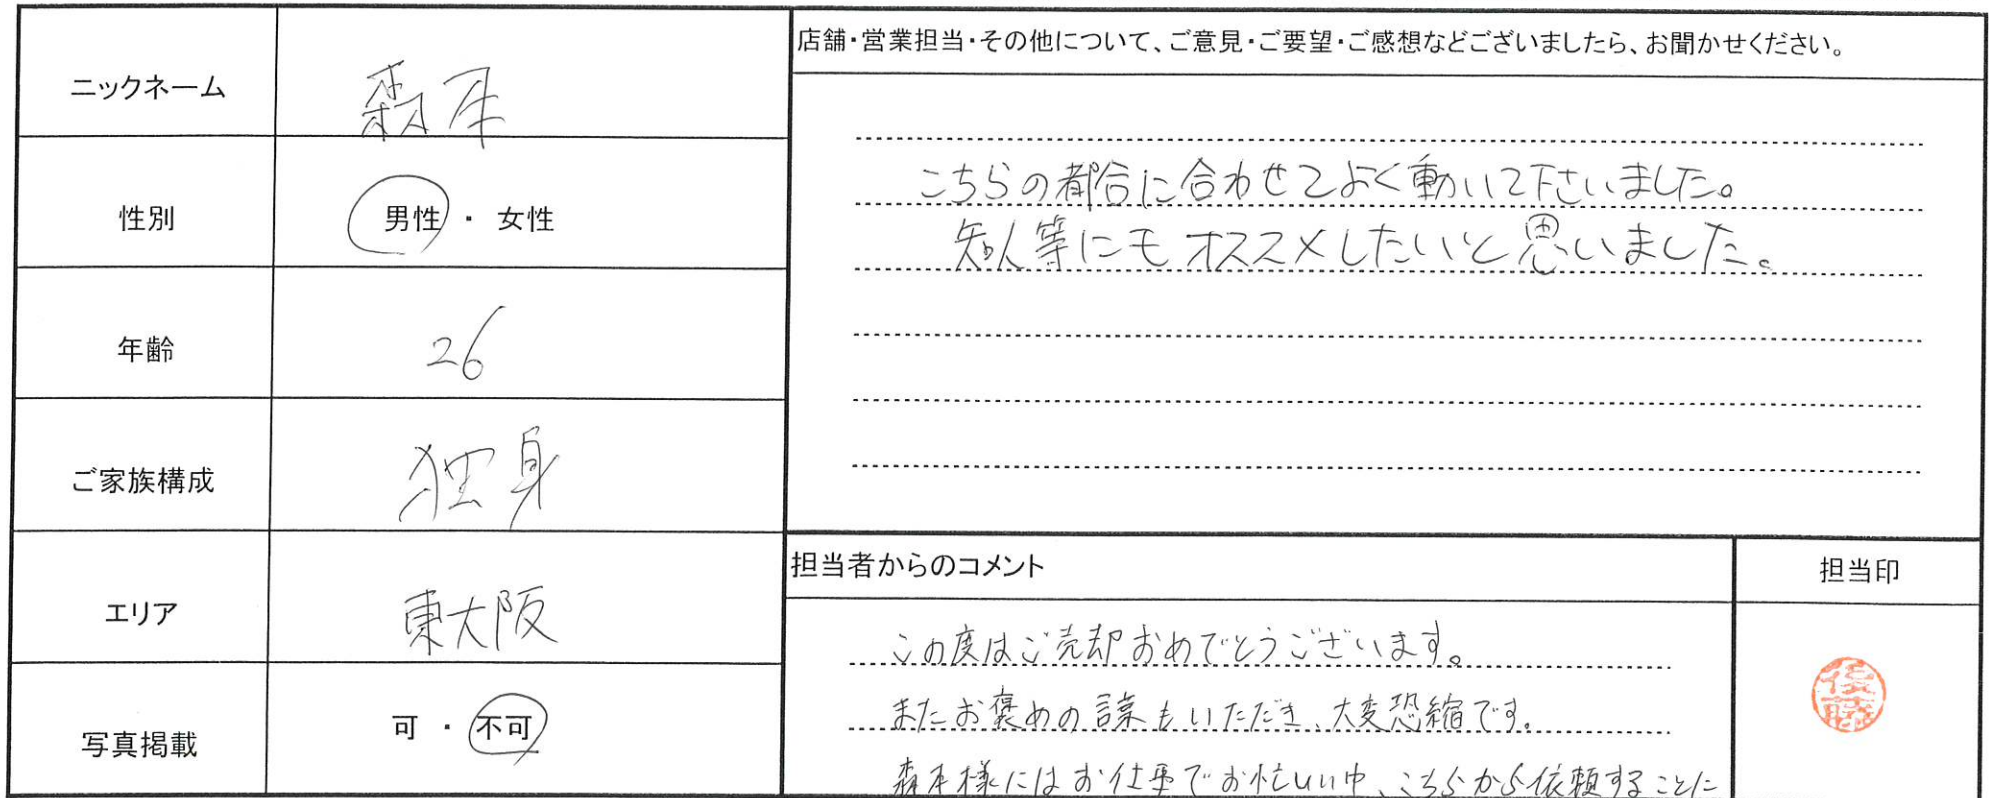 ニックネーム
森本
性別
男性 ・ 女性
年齢
26
ご家族構成
独身
エリア
東大阪
写真掲載
可 ・ 不可
店舗・営業担当・その他について、ご意見・ご要望・ご感想などございましたら、お聞かせください。
こちらの都合に合わせてよく動いて下さいました。
知人等にもオススメしたいと思いました。
担当者からのコメント
この度はご売却おめでとうございます。
またお褒めの言葉もいただき、大変恐縮です。
森本様にはお仕事でお忙しい中、こちらから依頼することに
担当印
後藤